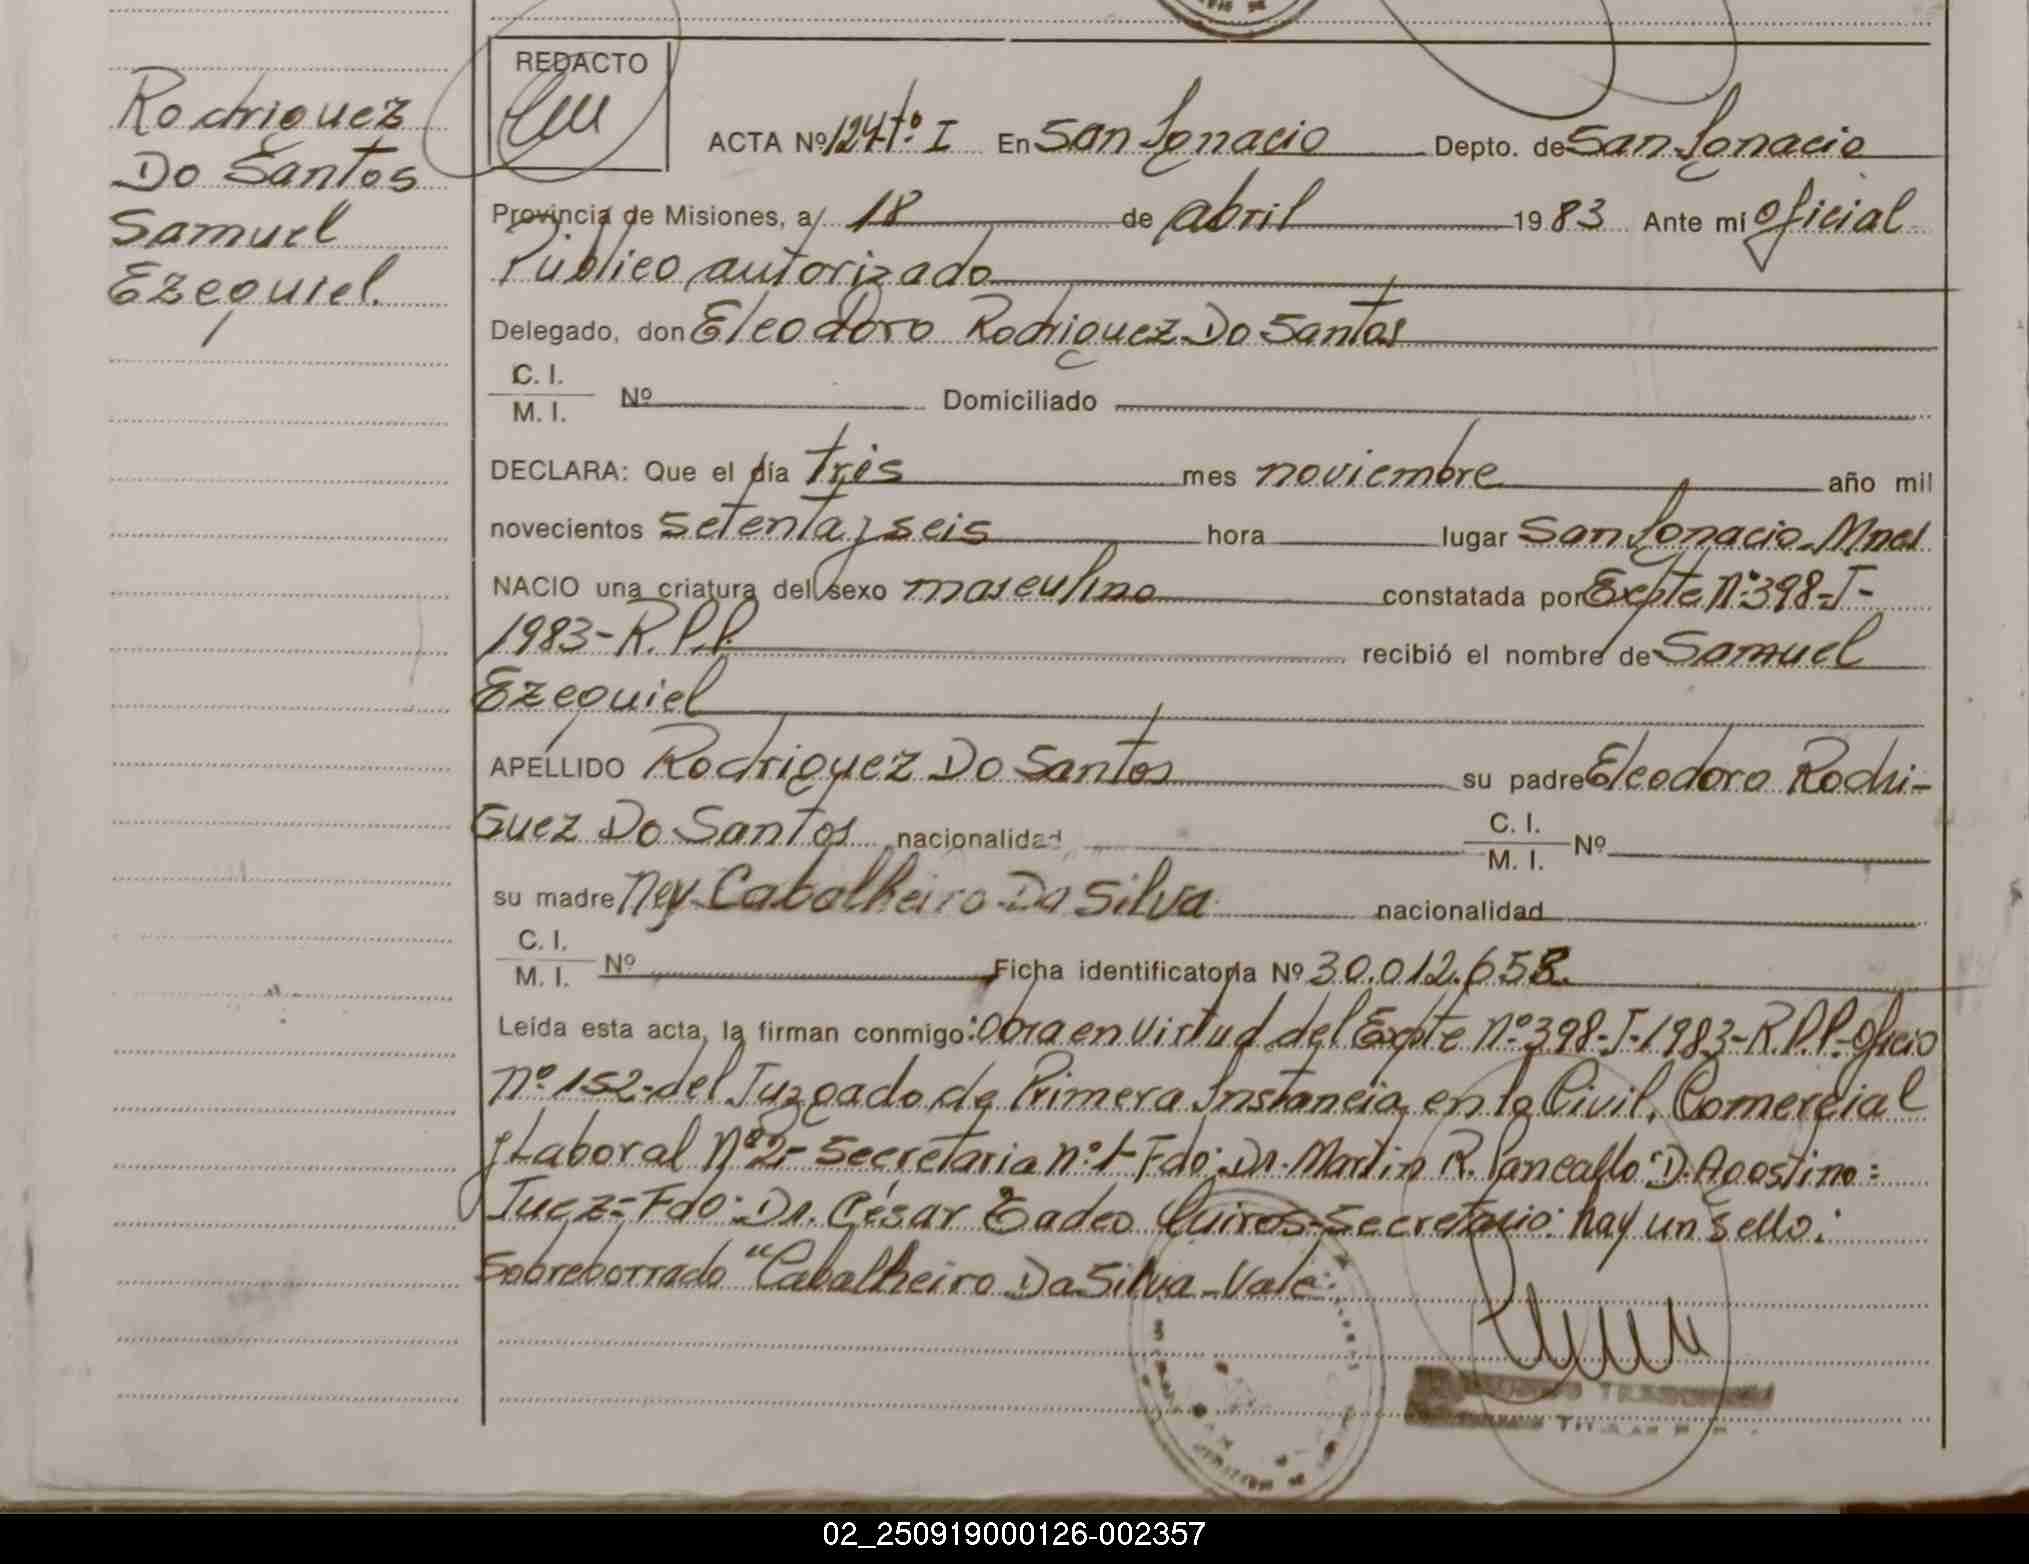 Rodriguez
Do Santos
Samuel
Ezequiel.
REDACTO
ACTA Nº 124 tº I En San Ignacio Depto. de San Ignacio
Provincia de Misiones, a 18 de abril 1983 Ante mí Oficial
Público autorizado
Delegado, don Eleodoro Rodriguez Do Santos
C. I.
M. I. Nº Domiciliado
DECLARA: Que el día tres mes noviembre año mil
novecientos setenta y seis hora lugar San Ignacio-Mnes
NACIO una criatura del sexo masculino constatada por Expte Nº 398-J-
1983-R.P.P. recibió el nombre de Samuel
Ezequiel
APELLIDO Rodriguez Do Santos su padre Eleodoro Rodri-
Guez Do Santos nacionalidad C. I.
M. I. Nº
su madre Ney Cabalheiro Da Silva nacionalidad
C. I.
M. I. Nº Ficha identificatoria Nº 30.012.658.
Leída esta acta, la firman conmigo: Obra en virtud del Expte Nº 398-J-1983-R.P.P-Oficio
Nº 152-del Juzgado de Primera Instancia en lo Civil, Comercial
y Laboral Nº 2-Secretaria nº 1-Fdo: Dr. Martin R. D. Agostino:
Juez-Fdo: Dr. César Eadeo Quiros-Secretario: hay un sello:
Sobreborrado "Cabalheiro Da Silva-Vale:
02_250919000126-002357